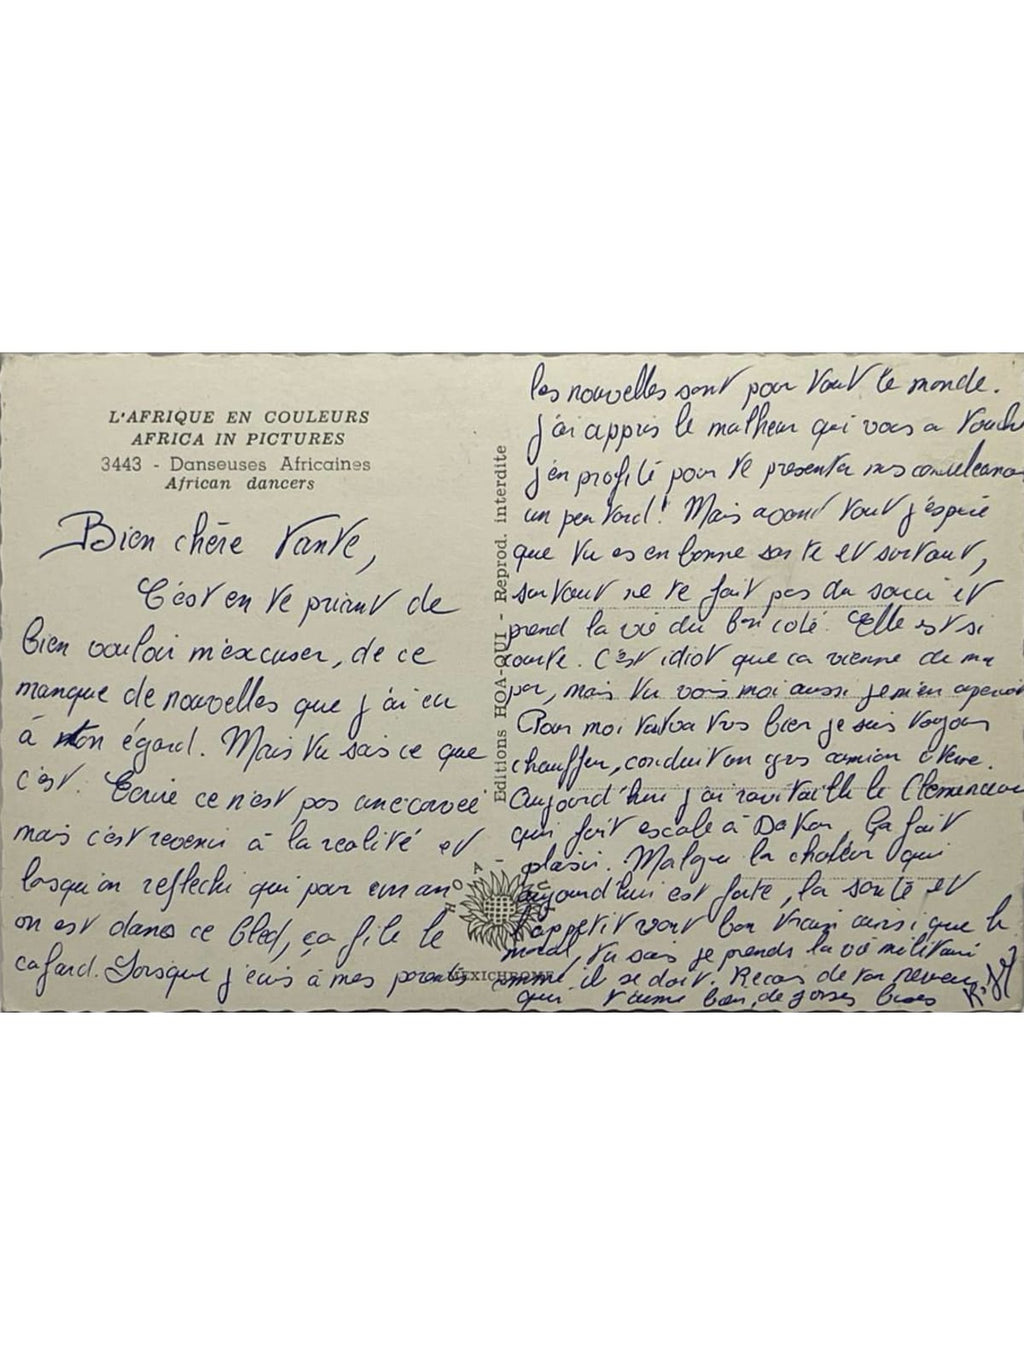 L'AFRIQUE EN COULEURS
AFRICA IN PICTURES
3443 - Danseuses Africaines
African dancers
Bien chère Tante,
C'est en te priant de
bien vouloir m'excuser, de ce
manque de nouvelles que j'ai eu
à ton égard. Mais tu sais ce que
c'est. Ecrire ce n'est pas une corvée
mais c'est revenir à la realité et
lorsqu'on reflechi qui pour un an
on est dans ce bled, ça file le
cafard. Lorsque j'ecris à mes parents
Editions HOA-QUI - Reprod. interdite
HOA-QUI
MEXICHROME
les nouvelles sont pour tout le monde.
J'ai appris le malheur qui vous a touché
j'en profite pour te presenter mes
un peu tard! Mais avant tout j'espère
que tu es en bonne sante et surtout,
surtout ne te fait pas du souci et
prend la vie du bon coté. Elle est si
courte. C'est idiot que ca vienne de ma
par, mais tu vois moi aussi je m'en
Pour moi tout va tres bien je suis toujours
chauffeur, conduit un gros camion citerne.
Aujourd'hui j'ai ravitaillé le Clemenceau
qui fait escale à Dakar. Ça fait
plaisir. Malgre la chaleur qui
aujourd'hui est forte, la santé et
l'appetit vont bon train ainsi que le
moral, tu sais je prends la vie militaire
comme il se doit. Recois de ton neveu
qui t'aime bien, de grosses bises